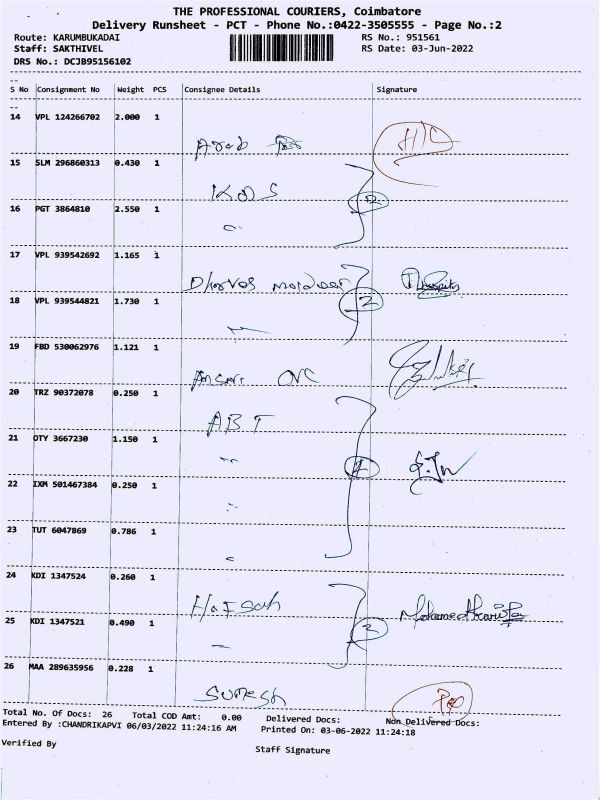 THE PROFESSIONAL COURIERS, Coimbatore
Delivery Runsheet - PCT - Phone No.:0422-3505555 - Page No.:2
Route: KARUMBUKADAI RS No.: 951561
Staff: SAKTHIVEL RS Date: 03-Jun-2022
DRS No.: DCJB95156102
S No Consignment No Weight PCS Consignee Details Signature
14 VPL 124266702 2.000 1
15 SLM 296860313 0.430 1
KDS
16 PGT 3864810 2.550 1
17 VPL 939542692 1.165 1
18 VPL 939544821 1.730 1
2
19 FBD 530062976 1.121 1
20 TRZ 90372078 0.250 1
ABT
21 OTY 3667230 1.150 1
22 IXM 501467384 0.250 1
23 TUT 6047869 0.786 1
24 KDI 1347524 0.260 1
25 KDI 1347521 0.490 1
26 MAA 289635956 0.228 1
Sumesh
Total No. Of Docs: 26 Total COD Amt: 0.00 Delivered Docs: Non Delivered Docs:
Entered By :CHANDRIKAPVI 06/03/2022 11:24:16 AM Printed On: 03-06-2022 11:24:18
Verified By Staff Signature